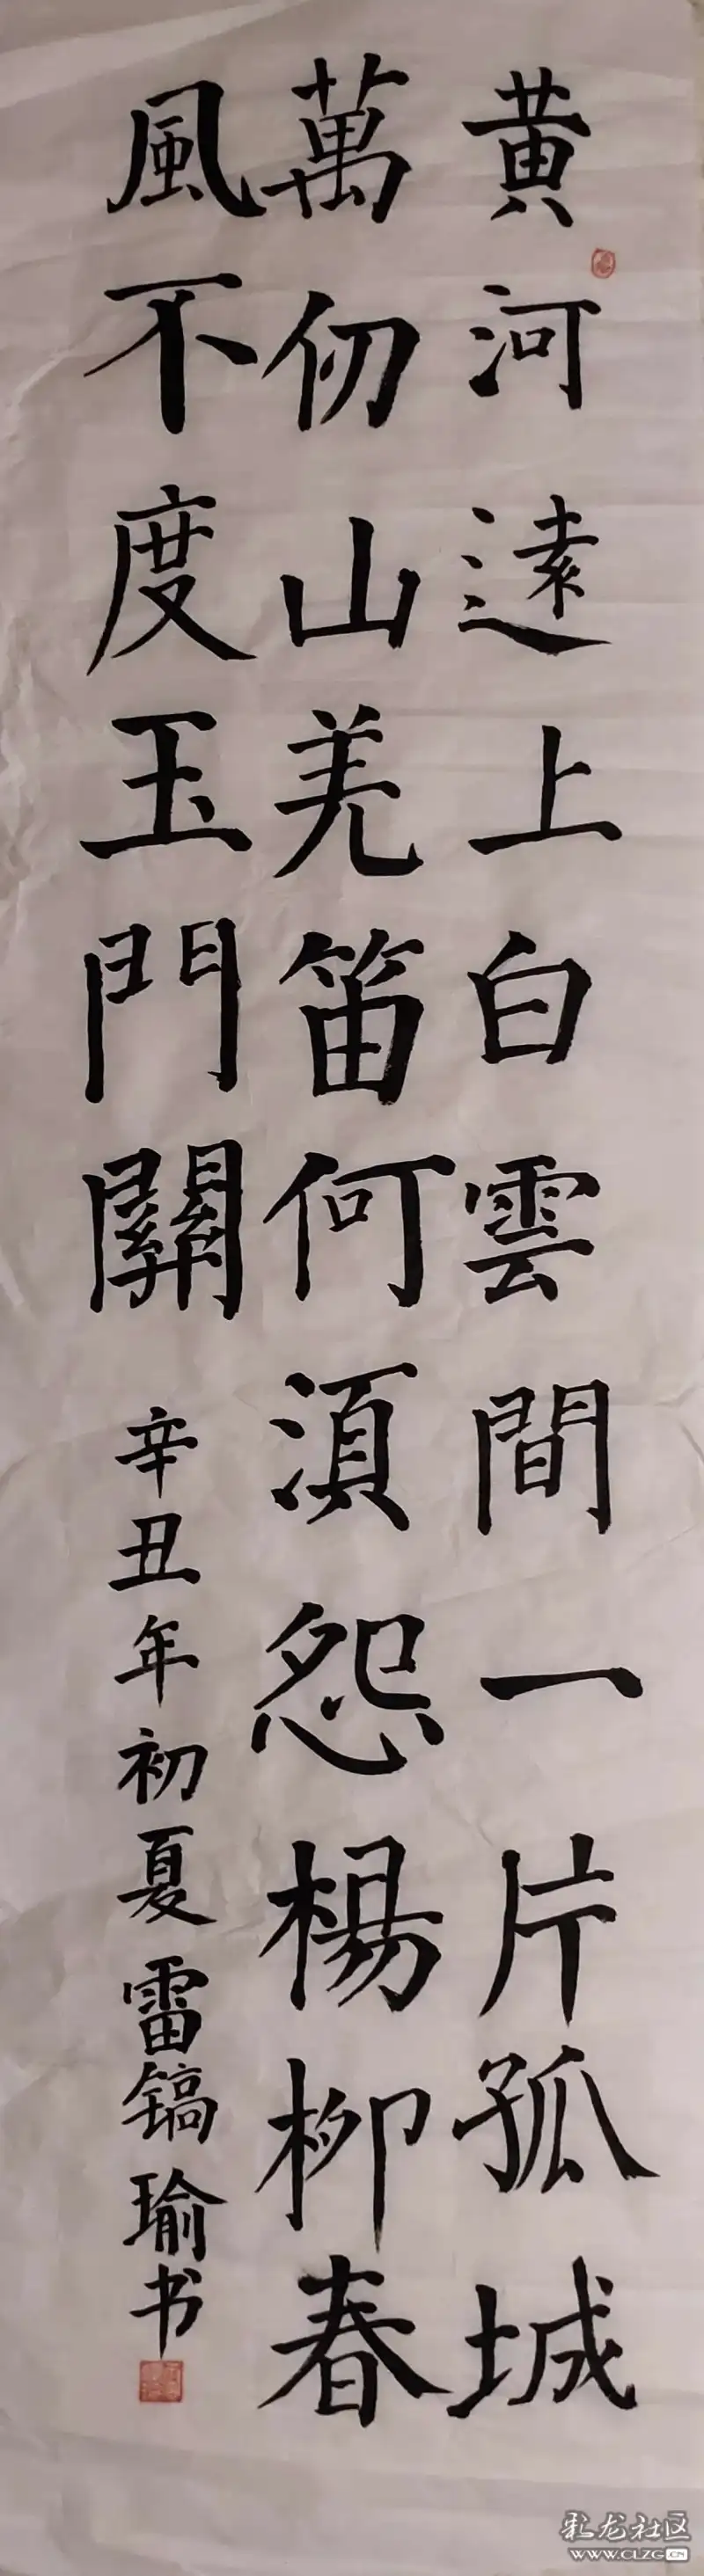 黄河遠上白雲間一片孤城
萬仞山羌笛何湏怨楊柳春
風不度玉門關
辛丑年初夏雷镐瑜书
彩龙社区
WWW.CLZG.CN